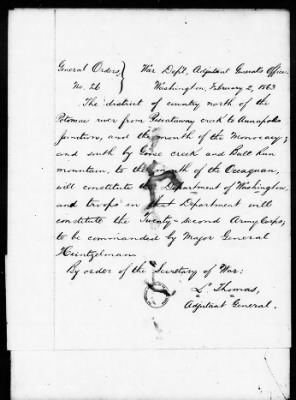 General Orders, } War Dept, Adjutant General's Office,
No. 26 Washington, February 2, 1863
The district of country north of the
Potomac river from Piscataway creek to Annapolis
Junction, and the mouth of the Monocacy;
and south by Goose creek and Bull Run
mountain, to the mouth of the Occoquan,
will constitute the Department of Washington,
and troops in that Department will
constitute the Twenty-second Army Corps,
to be commanded by Major General
Heintzelmann
By order of the Secretary of War:
L. Thomas,
Adjutant General.